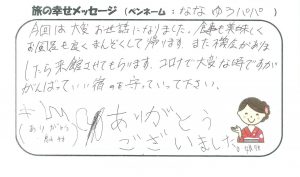 旅の幸せメッセージ（ペンネーム：なな ゆうパパ）
今回は大変お世話になりました。食事も美味しく
お風呂も良くまんぞくして帰ります。また機会があり
したら来館させてもらいます。コロナで大変な時ですが
がんばって 宿を守っていって下さい。
ありがとう
ございました。
(ありがとう